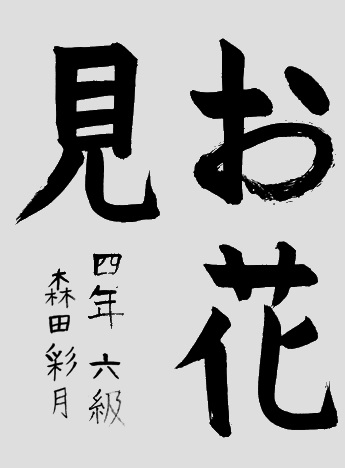 お花
見
四年 六級
森田彩月